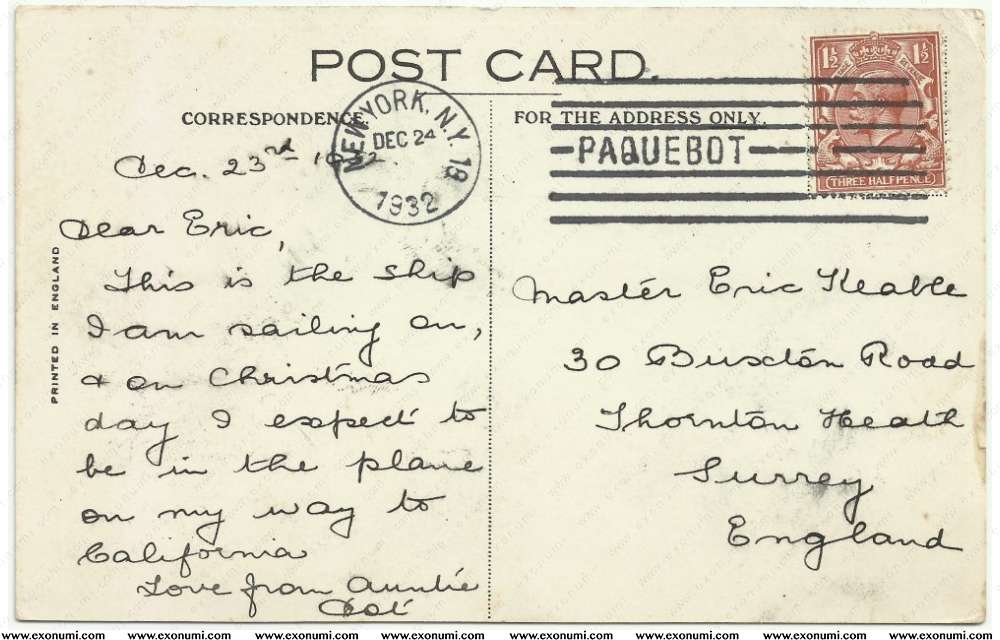 POST CARD.
CORRESPONDENCE.
FOR THE ADDRESS ONLY.
NEW YORK, N.Y. 18
DEC 24
1932
PAQUEBOT
1½ 1½
THREE HALFPENCE
PRINTED IN ENGLAND
Dec. 23rd 1932.
Dear Eric,
This is the ship
I am sailing on,
& on Christmas
day I expect to
be in the plane
on my way to
California
Love from Auntie
Dot
Master Eric Keable
30 Buxton Road
Thornton Heath
Surrey
England
www.exonumi.com www.exonumi.com www.exonumi.com www.exonumi.com www.exonumi.com www.exonumi.com www.exonumi.com www.exonumi.com